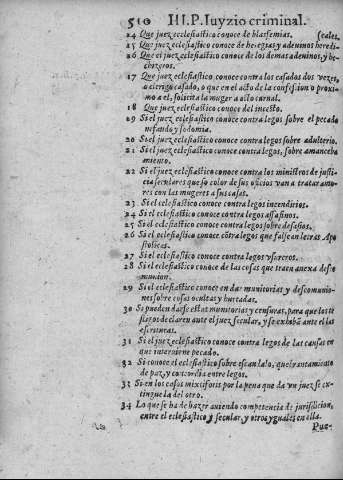 510 III.P. Iuyzio criminal.
24 Que juez eclesiastico conoce de blasfemias. (cales.
25 Que juez eclesiastico conoce de heregias y adeuinos heredi-
26 Que el juez eclesiastico conoce de los demas adeuinos, y he-
chizeros.
17 Que juez eclesiastico conoce contra los casados dos vezes,
o clerigo casado, o que en el acto de la confession o proxi-
mo a el, solicita la muger a acto carnal.
18 Que juez eclesiastico conoce del incesto.
29 Si el juez eclesiastico conoce contra legos sobre el pecado
nefando y sodomia.
20 Si el juez eclesiastico conoce contra legos sobre adulterio.
21 Si el juez eclesiastico conoce contra legos, sobre amanceba
miento.
22 Si el juez eclesiastico conoce contra los ministros de justi-
cia seculares que so color de sus oficios van a tratar amo-
res con las mugeres a sus casas.
23 Si el eclesiastico conoce contra legos incendiarios.
24 Si el eclesiastico conoce contra legos assasinos.
25 Si el eclesiastico conoce contra legos sobre desafios.
26 Si el eclesiastico conoce contra legos que falsean letras Apo
stolicas.
27 Si el eclesiastico conoce contra legos vsureros.
28 Si el eclesiastico conoce de las cosas que traen anexa desco
munion.
29 Si el eclesiastico conoce en dar munitorias y descomunio-
nes sobre cosas ocultas y hurtadas.
30 Si pueden darse estas munitorias y censuras, para que los te
stigos declaren ante el juez secular, y se exhiban ante el las
escrituras.
31 Si el juez eclesiastico conoce contra legos de las causas en
que interuiene pecado.
32 Si conoce el eclesiastico sobre escandalo, quebrantamiento
de paz, y concordia entre legos.
33 Si en los casos mixtiforis por la pena que da vn juez se ex-
tingue la del otro.
34 Lo que se ha de hazer auiendo competencia de jurisdicion,
entre el eclesiastico y secular, y otros yguales en ella.
Pue-